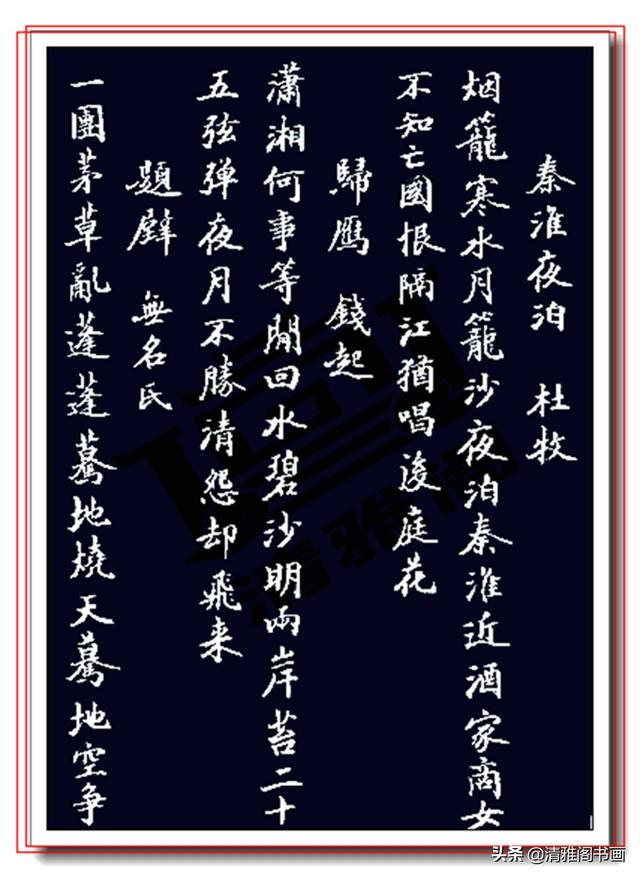 秦淮夜泊 杜牧
烟籠寒水月籠沙夜泊秦淮近酒家商女
不知亡國恨隔江猶唱後庭花
歸鴈 錢起
瀟湘何事等閒回水碧沙明兩岸苔二十
五弦弹夜月不勝清怨却飛来
題壁 無名氏
一團茅草亂蓬蓬驀地燒天驀地空争
清雅阁
头条 @清雅阁书画